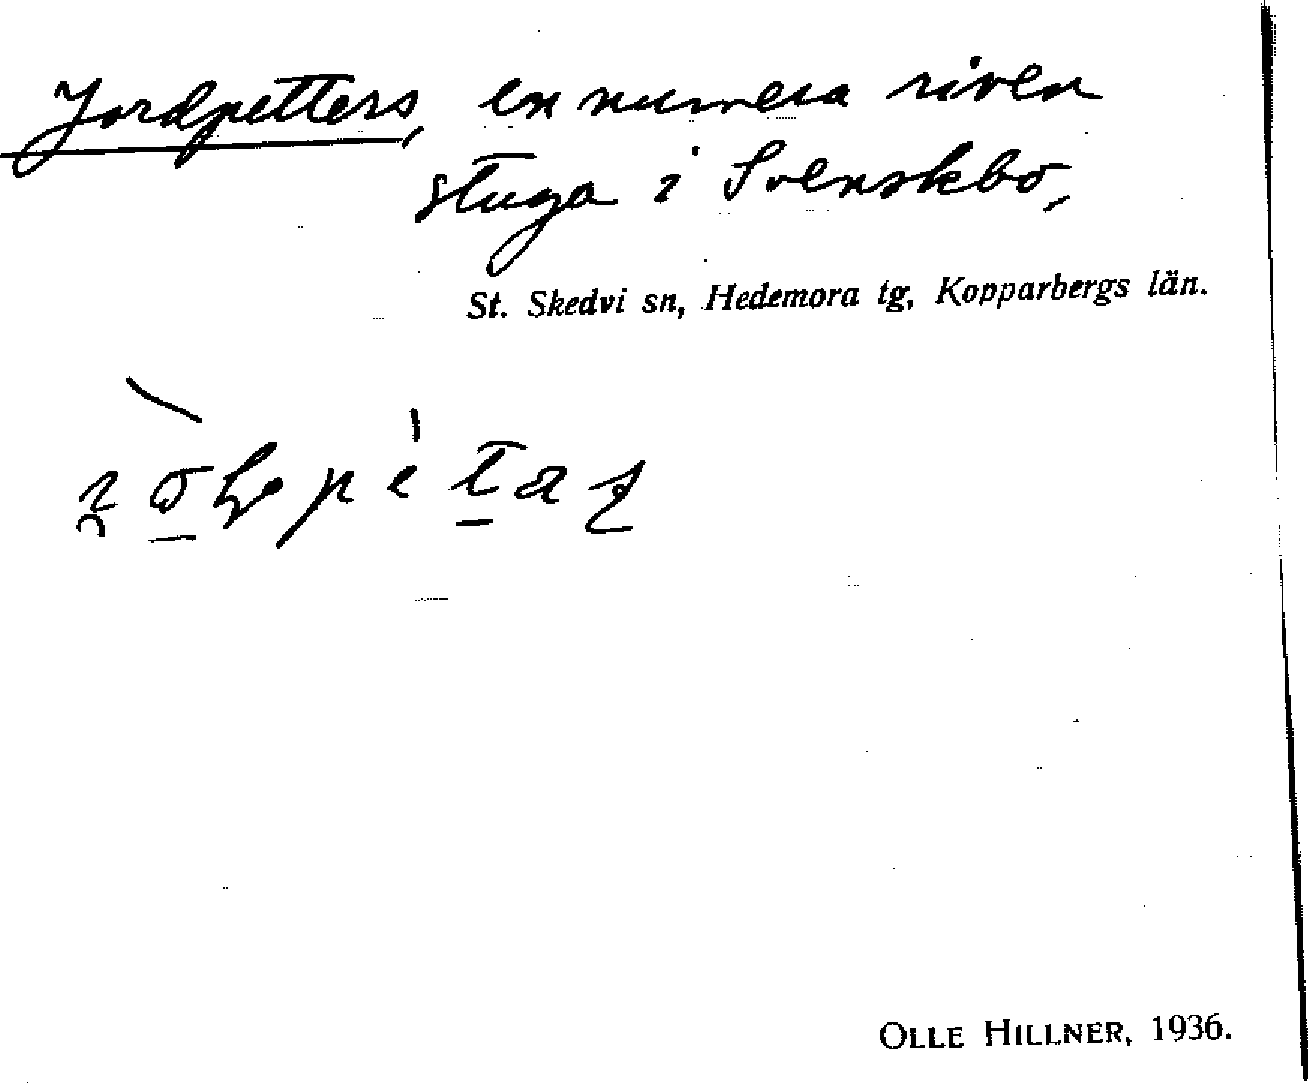 Jordpetters, en numera riven
stuga i Svenskbo,
St. Skedvi sn, Hedemora tg, Kopparbergs län.
OLLE HILLNER, 1936.